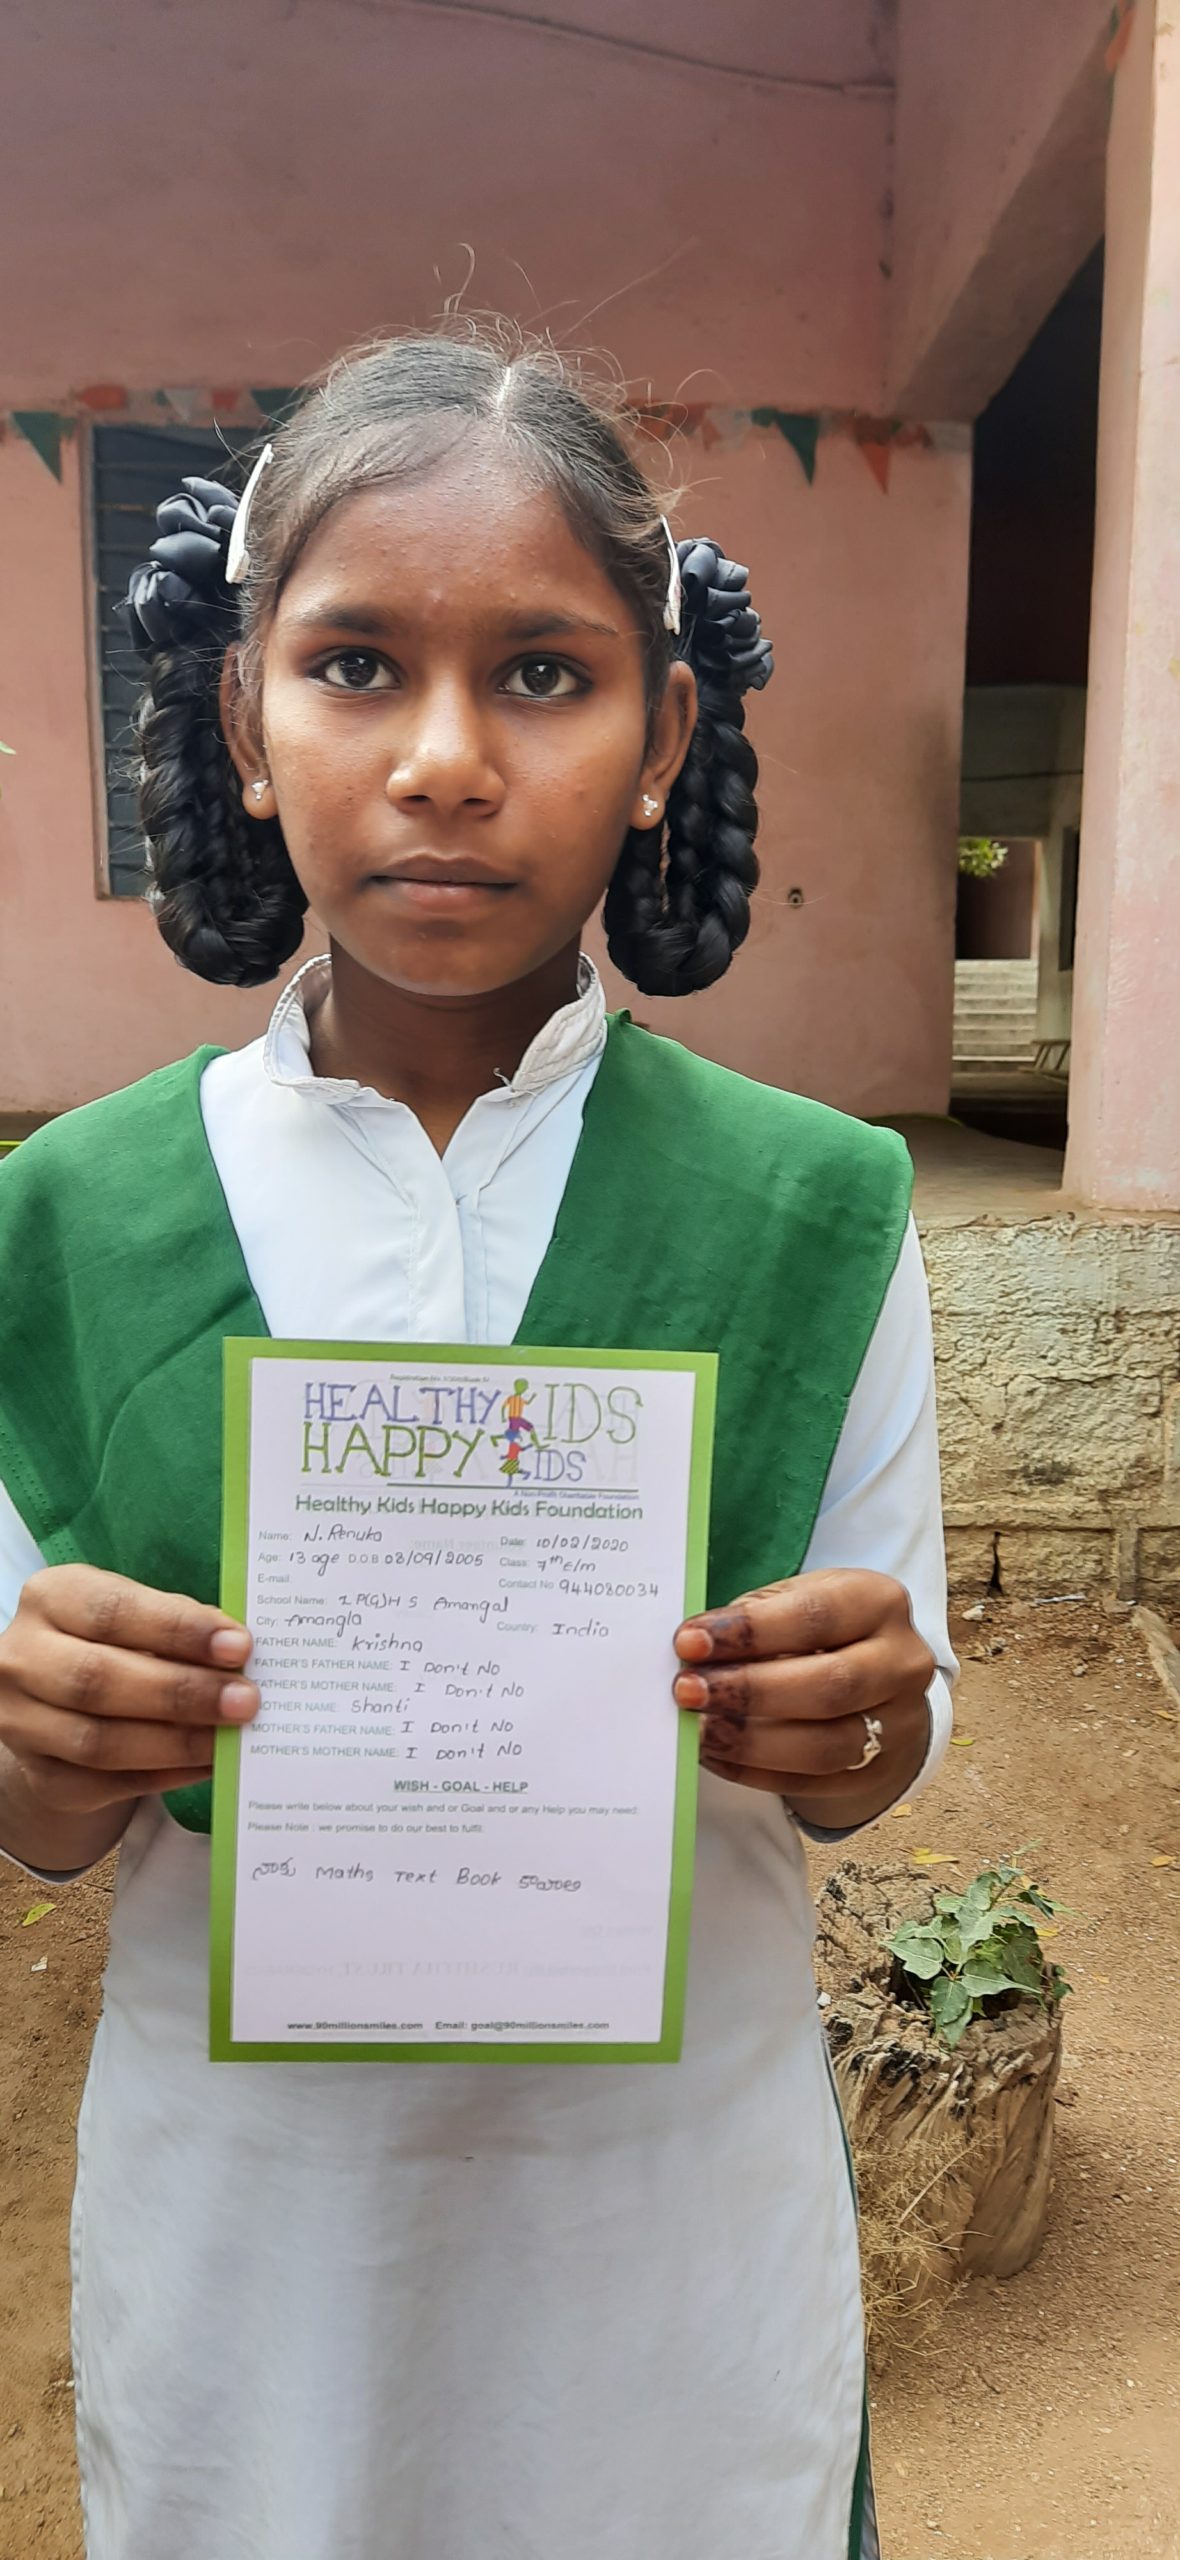 HEALTHY KIDS
HAPPY KIDS
A Non-Profit Charitable Foundation
Healthy Kids Happy Kids Foundation
Name: N. Renuka Date: 10/02/2020
Age: 13 age D.O.B 08/09/2005 Class: 7th E/m
E-mail: Contact No 944080034
School Name: Z P(G)H S Amangal
City: Amangla Country: India
FATHER NAME: Krishna
FATHER'S FATHER NAME: I Don't NO
FATHER'S MOTHER NAME: I Don't NO
MOTHER NAME: Shanti
MOTHER'S FATHER NAME: I Don't NO
MOTHER'S MOTHER NAME: I Don't NO
WISH - GOAL - HELP
Please write below about your wish and or Goal and or any Help you may need:
Please Note : we promise to do our best to fulfil:
నాకు Maths Text Book కావాలి
www.90millionsmiles.com Email: goal@90millionsmiles.com